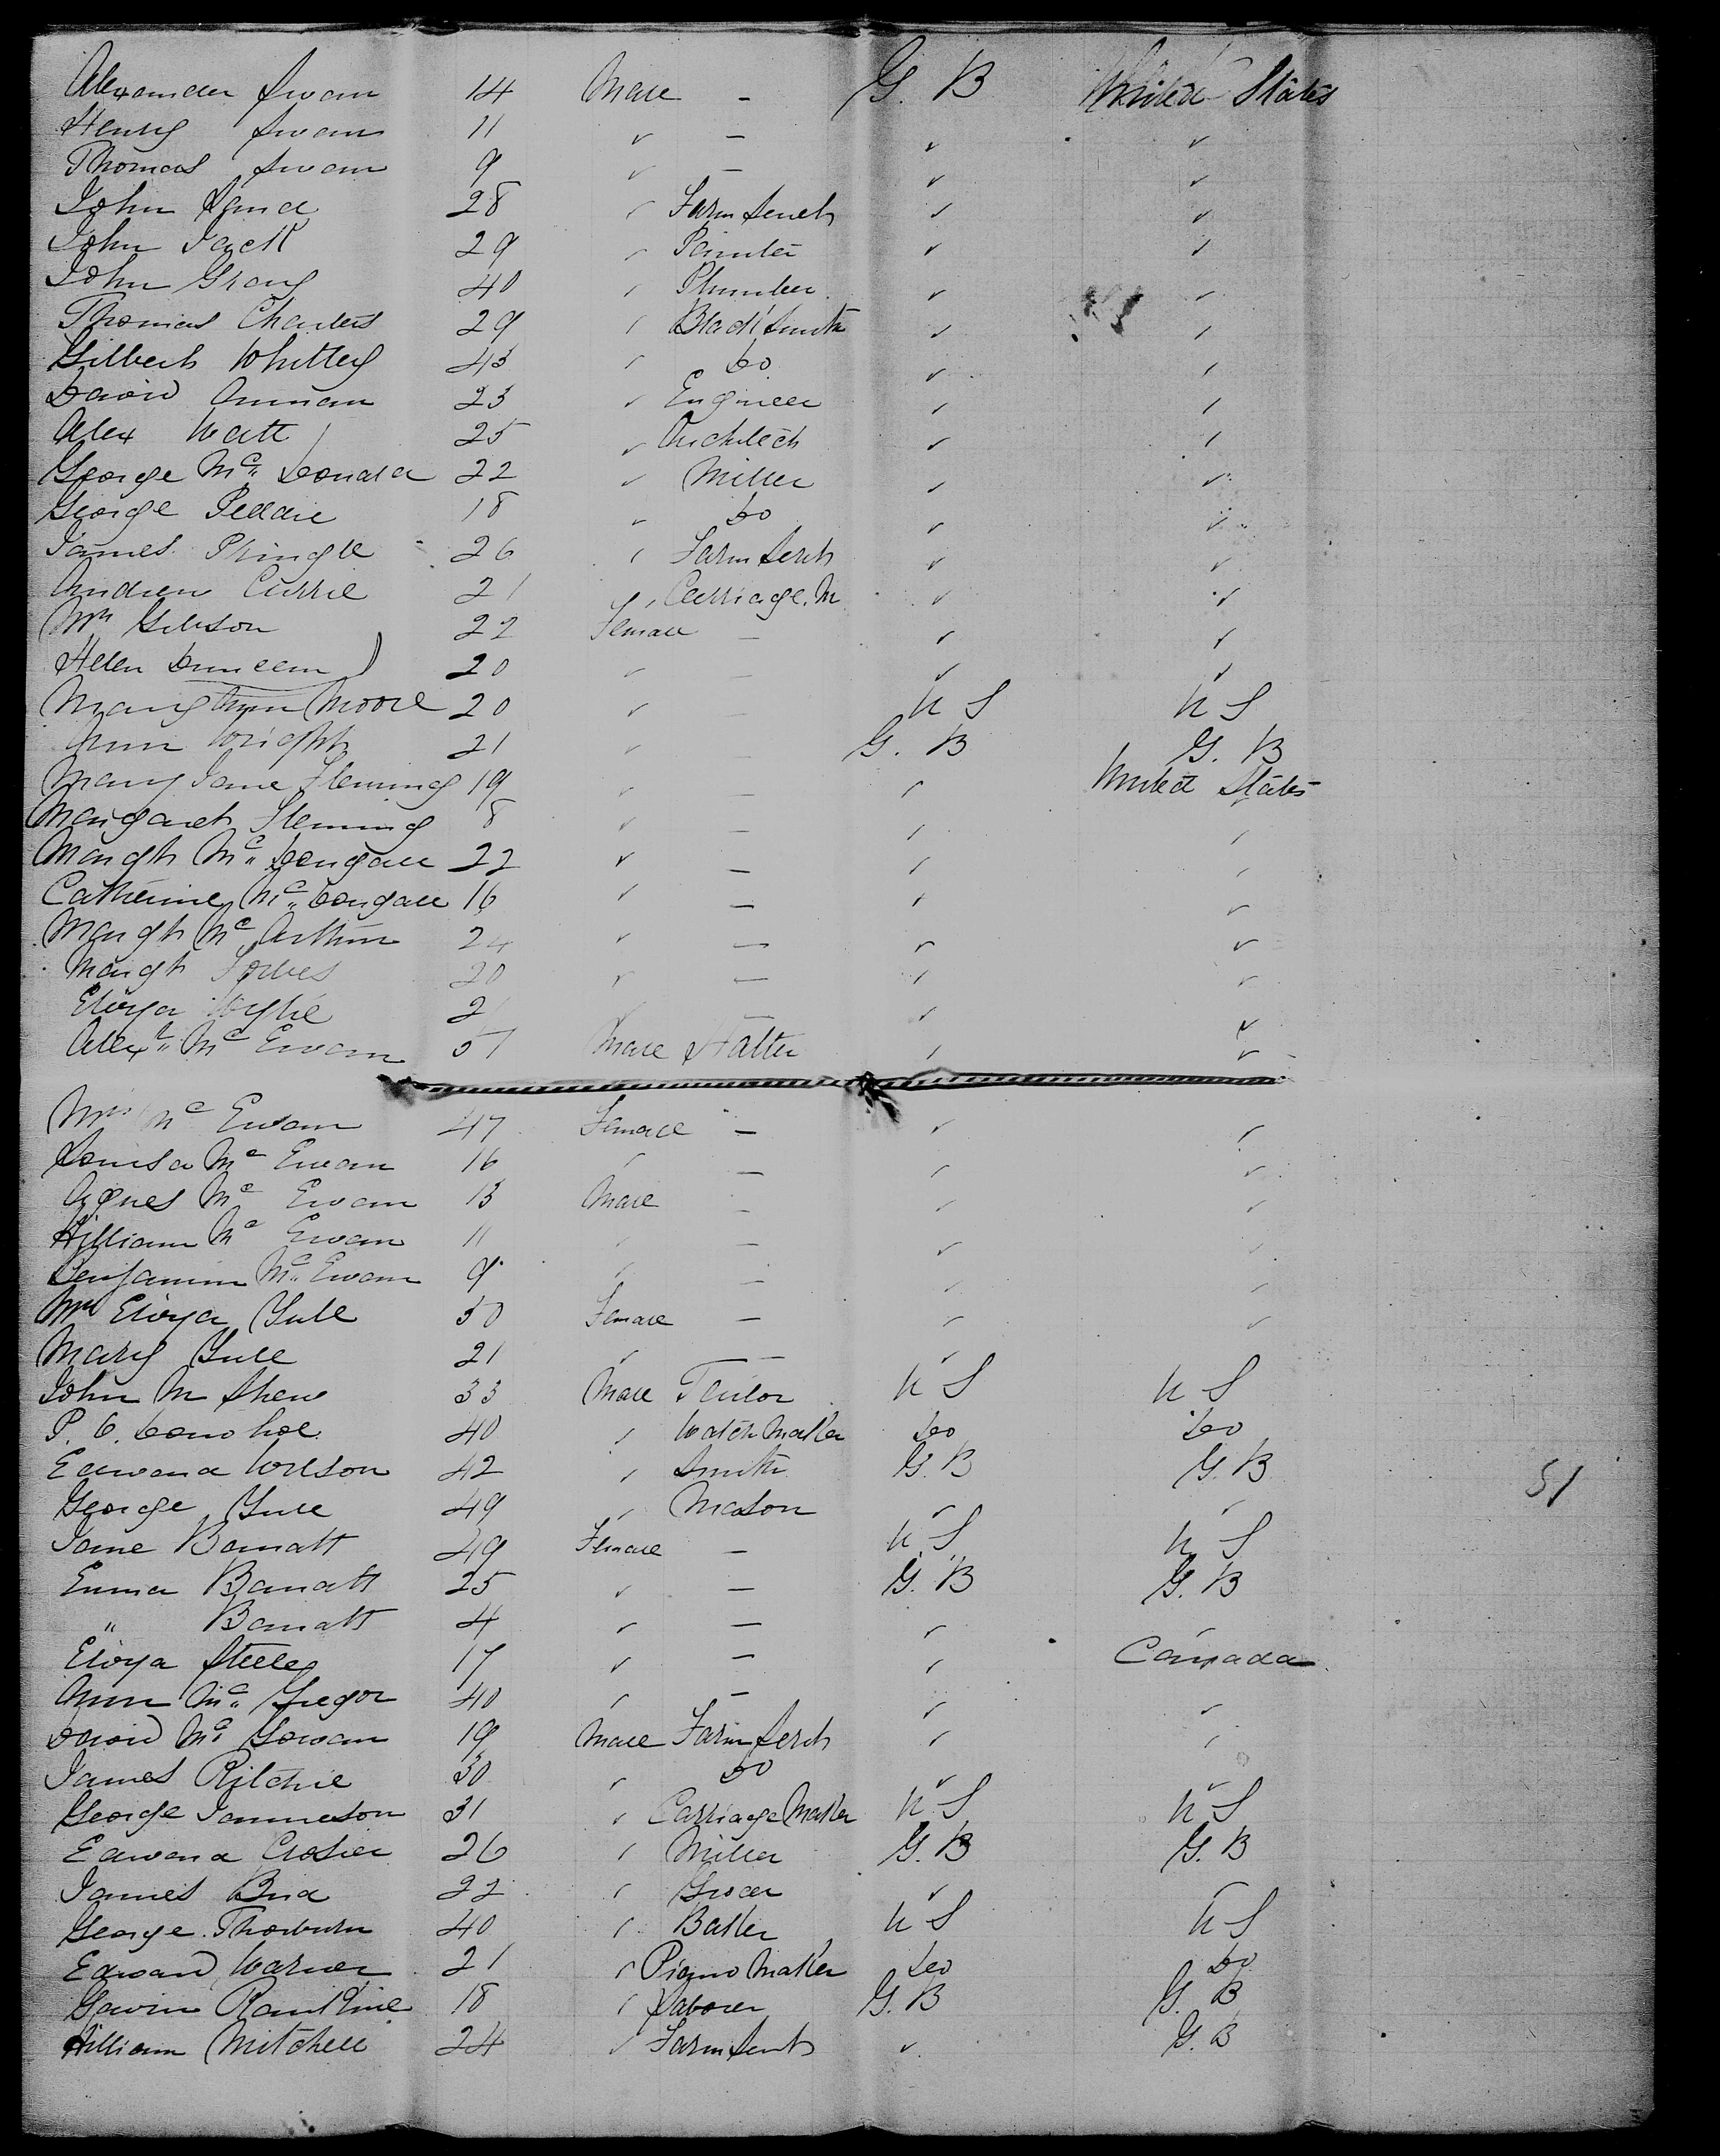 Alexander Swan 14 Male - G. B United States
Henry Swan 11 " - " "
Thomas Swan 9 " - " "
John Laird 28 " Farm Servt " "
John Jack 29 " Painter " "
John Gray 40 " Plumber " "
Thomas Charters 29 " Blacksmith " "
Gilbert Whitley 43 " Do " "
David Annan 23 " Engineer " "
Alex Watt 25 " Architect " "
George Mc Donald 22 " Miller " "
George Peddie 18 " Do " "
James Pringle 26 " Farm Servt " "
Andrew Currie 21 " Carriage. M " "
Mrs Gibson 22 Female - " "
Helen Duncan 20 " - " "
Mary Ann Moore 20 " - U S U S
Ann Wright 21 " - G. B G. B
Mary Jane Fleming 19 " - " United States
Margaret Fleming 8 " - " "
Margt Mc Dougall 22 " - " "
Catherine Mc Dougall 16 " - " "
Margt Mc Arthur 24 " - " "
Margt Forbes 20 " - " "
Eliza Wylie 21 " - " "
Alexr Mc Ewan 51 Male Hatter " "
Mrs Mc Ewan 47 Female - " "
Louisa Mc Ewan 16 " - " "
Agnes Mc Ewan 13 Male - " "
William Mc Ewan 11 " - " "
Benjamin Mc Ewan 9 " - " "
Mrs Eliza Yule 50 Female - " "
Mary Yule 21 " - " "
John M Shaw 33 Male Tailor U S U S
P. C. Donohoe 40 " Watch Maker Do Do
Edward Wilson 42 " Smith G. B G. B
George Yule 49 " Mason " "
Jane Barratt 49 Female - U. S U. S
Emma Barratt 25 " - G. B G. B
" Barratt 4 " - " "
Eliza Steele 17 " - " Canada
Ann Mc Gregor 40 " - " "
David Mc Gowan 19 Male Farm Servt " "
James Ritchie 30 " Do " "
George Jameson 31 " Carriage Maker U. S U S
Edward Crosier 26 " Miller G. B G. B
James Bird 22 " Grocer " "
George Thorburn 40 " Baker U S U S
Edward Warner 21 " Piano Maker Do Do
Gavin Rankine 18 " Laborer G. B G. B
William Mitchell 24 " Farm Servt " G. B
51